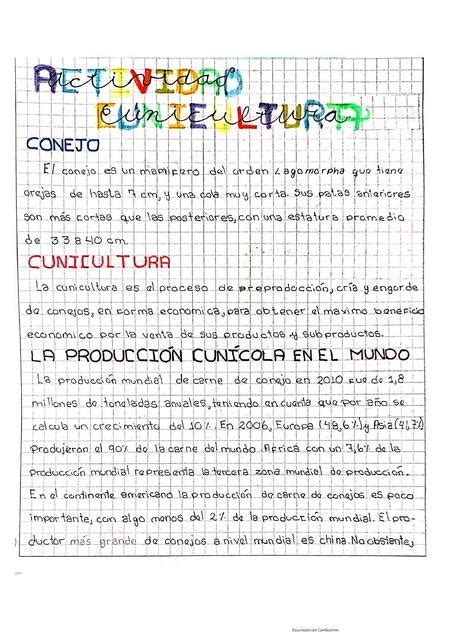 Actividad
Cunicultura
CONEJO
El conejo es un mamifero del orden Lagomorpha que tiene
orejas de hasta 7 cm, y una cola muy corta. Sus patas anteriores
son más cortas que las posteriores, con una estatura promedio
de 33 a 40 cm.
CUNICULTURA
La cunicultura es el proceso de preproducción, cría y engorde
de conejos, en forma economica, para obtener el maximo beneficio
economico por la venta de sus productos y subproductos.
LA PRODUCCIÓN CUNÍCOLA EN EL MUNDO
La producción mundial de carne de conejo en 2010 fue de 1,8
millones de toneladas anuales, teniendo en cuenta que por año se
calcula un crecimiento del 10%. En 2006, Europa (48,6%) y Asia (41,7%)
Produjeron el 90% de la carne del mundo. Africa con un 7,6% de la
Producción mundial representa la tercera zona mundial de producción.
En el continente americano la producción de carne de conejos es poco
importante, con algo menos del 2% de la producción mundial. El pro-
ductor más grande de conejos a nivel mundial es china. No obstante,
Escaneado con CamScanner